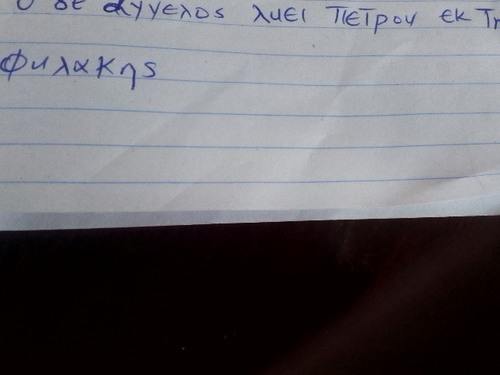 ο δε αγγελος λυει Πετρου εκ τη
φυλακης